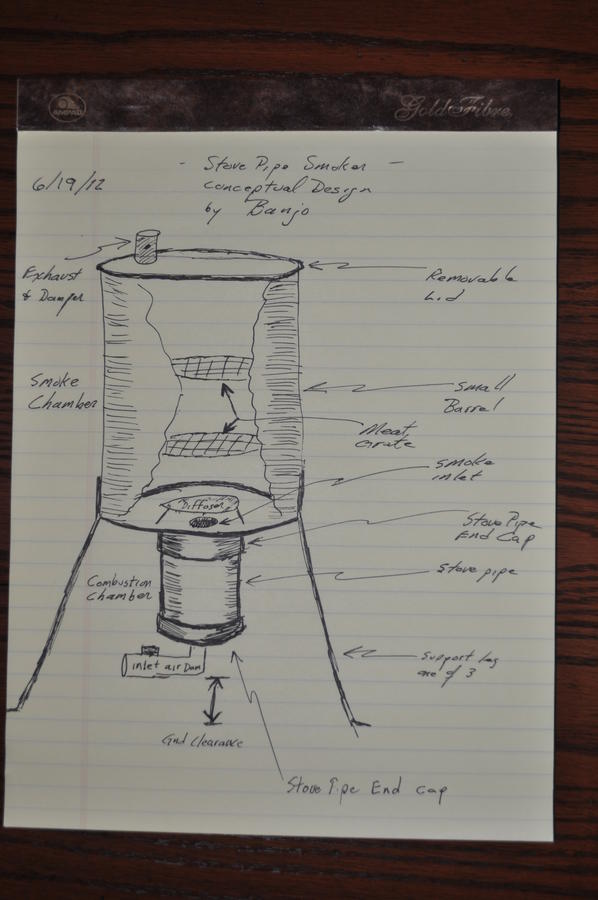 AMPAD
Gold Fibre
- Stove Pipe Smoker -
6/19/12
Conceptual Design
by Banjo
Exhaust
& Damper
Removable
Lid
Smoke
Chamber
Small
Barrel
Meat
Grate
Smoke
inlet
Diffuser
Stove Pipe
End Cap
Stove pipe
Combustion
Chamber
inlet air Dam
Support leg
one of 3
Gnd Clearance
Stove Pipe End Cap